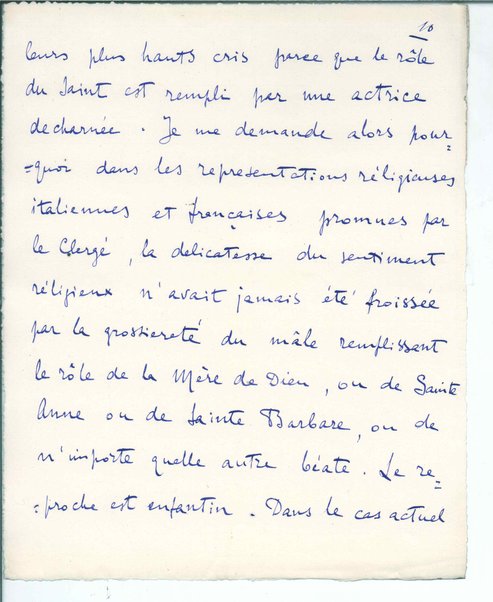 10
leurs plus hauts cris parce que le rôle
du Saint est rempli par une actrice
decharnée. Je me demande alors pour=
=quoi dans les representations réligieuses
italiennes et françaises promues par
le Clergé, la delicatesse du sentiment
réligieux n'avait jamais été froissée
par la grossiereté du mâle remplissant
le rôle de la Mère de Dieu, ou de Sainte
Anne ou de Sainte Barbare, ou de
n'importe quelle autre béate. Le re=
=proche est enfantin. Dans le cas actuel